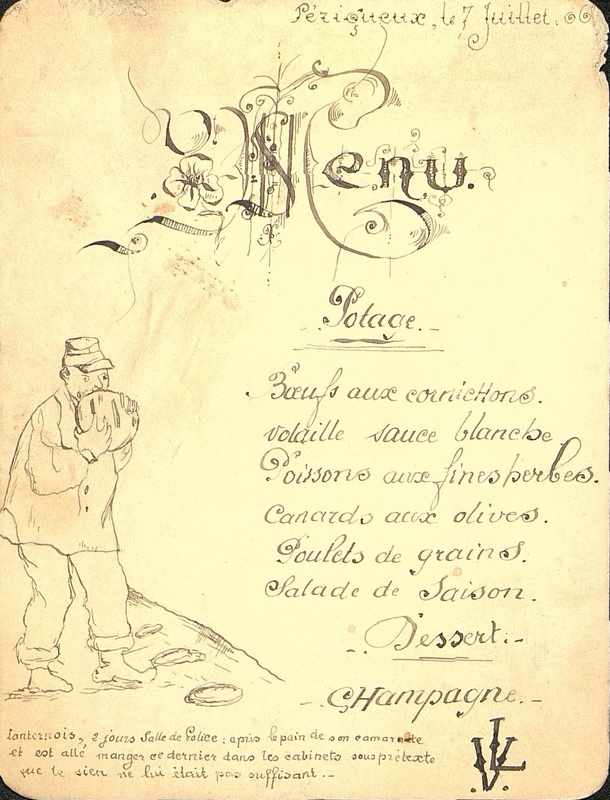 Périgueux, le 7 Juillet. 06
Menu.
Potage.-
Bœufs aux cornichons.
volaille sauce blanche.
Poissons aux fines herbes.
Canards aux olives.
Poulets de grains.
Salade de Saison.
Dessert:-
CHampagne.-
Lanternois, 2 jours Salle de Police: après le pain de son camarade
et est allé manger ce dernier dans les cabinets sous prétexte
que le sien ne lui était pas suffisant.-